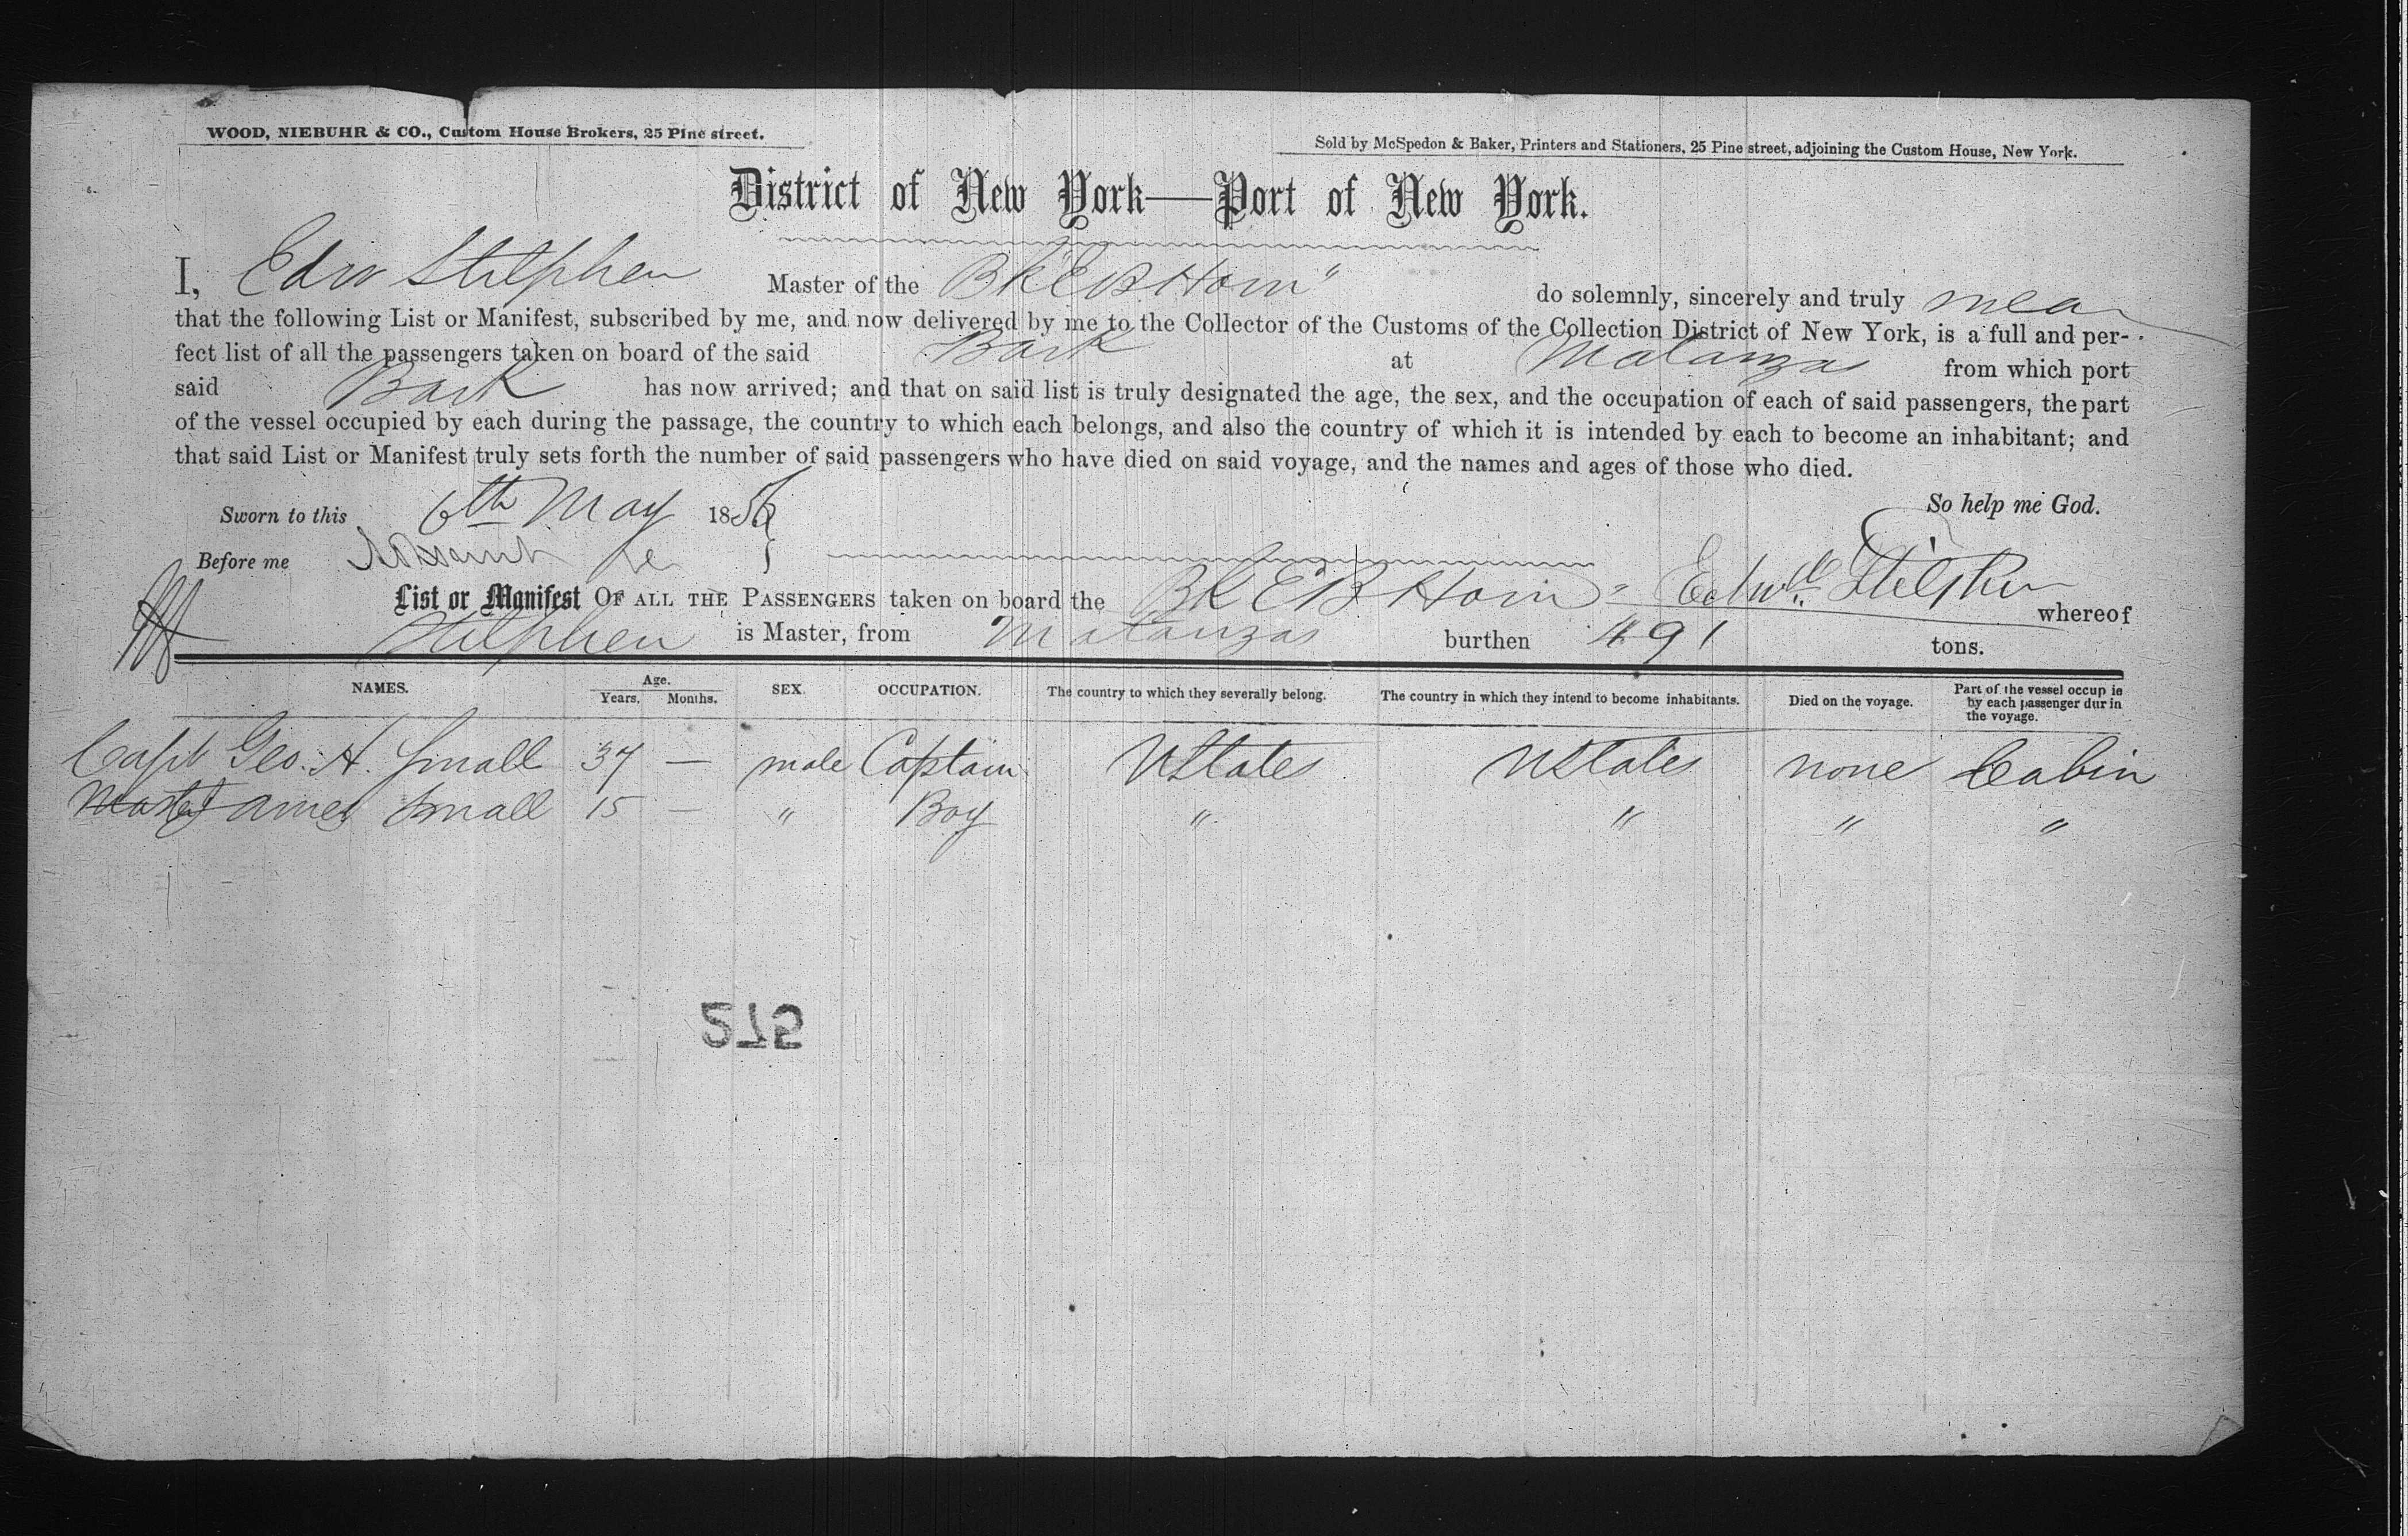 WOOD, NIEBUHR & CO., Custom House Brokers, 25 Pine street.
Sold by McSpedon & Baker, Printers and Stationers, 25 Pine street, adjoining the Custom House, New York.
District of New York—Port of New York.
I, Edw Stilphen Master of the Bk "E B Horn" do solemnly, sincerely and truly swear
that the following List or Manifest, subscribed by me, and now delivered by me to the Collector of the Customs of the Collection District of New York, is a full and per-
fect list of all the passengers taken on board of the said Bark at Matanzas from which port
said Bark has now arrived; and that on said list is truly designated the age, the sex, and the occupation of each of said passengers, the part
of the vessel occupied by each during the passage, the country to which each belongs, and also the country of which it is intended by each to become an inhabitant; and
that said List or Manifest truly sets forth the number of said passengers who have died on said voyage, and the names and ages of those who died.
Sworn to this 6th May 1856 So help me God.
Before me
Edwd Stilphen
List or Manifest OF ALL THE PASSENGERS taken on board the Bk E B Horn whereof
Stilphen is Master, from Matanzas burthen 491 tons.
NAMES. Age. Years. Months. SEX. OCCUPATION. The country to which they severally belong. The country in which they intend to become inhabitants. Died on the voyage. Part of the vessel occupie by each passenger durin the voyage.
Capt Geo. A. Small 37 — male Captain UStates UStates none Cabin
Master James Small 15 — " Boy " " " "
572